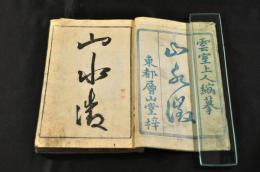 雲室上人編摹
山水徴
東都層山堂梓
山水徴